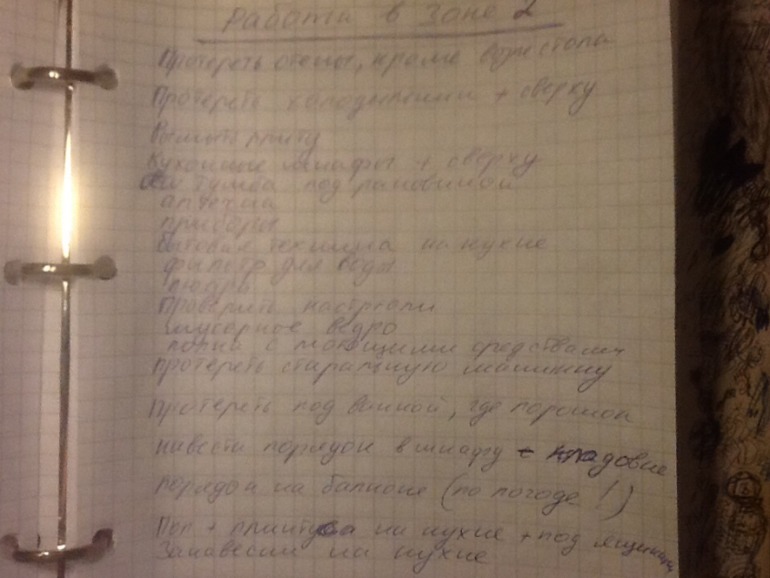 Работы в Зоне 2
Протереть стены, кроме
Протереть холодильник + сверху
Вымыть плиту
Кухонные шкафы + сверху
тумба под раковиной
аптечка
приборы
бытовая техника на кухне
фильтр для воды
люстра
Проверить кастрюли
мусорное ведро
полка с моющими средствами
протереть стиральную машинку
Протереть под ванной, где порошок
навести порядок в шкафу - кладовке
порядок на балконе (по погоде!)
Пол + плинтуса на кухне + под ящиками
Занавески на кухне